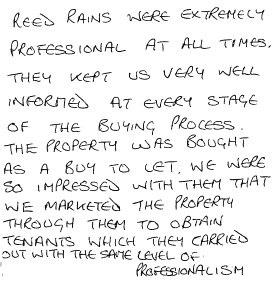 REED RAINS WERE EXTREMELY
PROFESSIONAL AT ALL TIMES.
THEY KEPT US VERY WELL
INFORMED AT EVERY STAGE
OF THE BUYING PROCESS.
THE PROPERTY WAS BOUGHT
AS A BUY TO LET. WE WERE
SO IMPRESSED WITH THEM THAT
WE MARKETED THE PROPERTY
THROUGH THEM TO OBTAIN
TENANTS WHICH THEY CARRIED
OUT WITH THE SAME LEVEL OF
PROFESSIONALISM